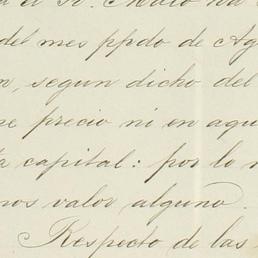 a el Sr. Malo ha
del mes ppdo de Ag
n, segun dicho del
ne precio ni en aqu
ta capital: por lo m
nos valor alguno.
Respecto de las